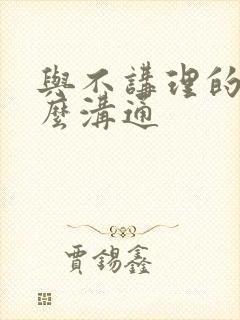 與不講理的
麼溝通
賈錫鑫